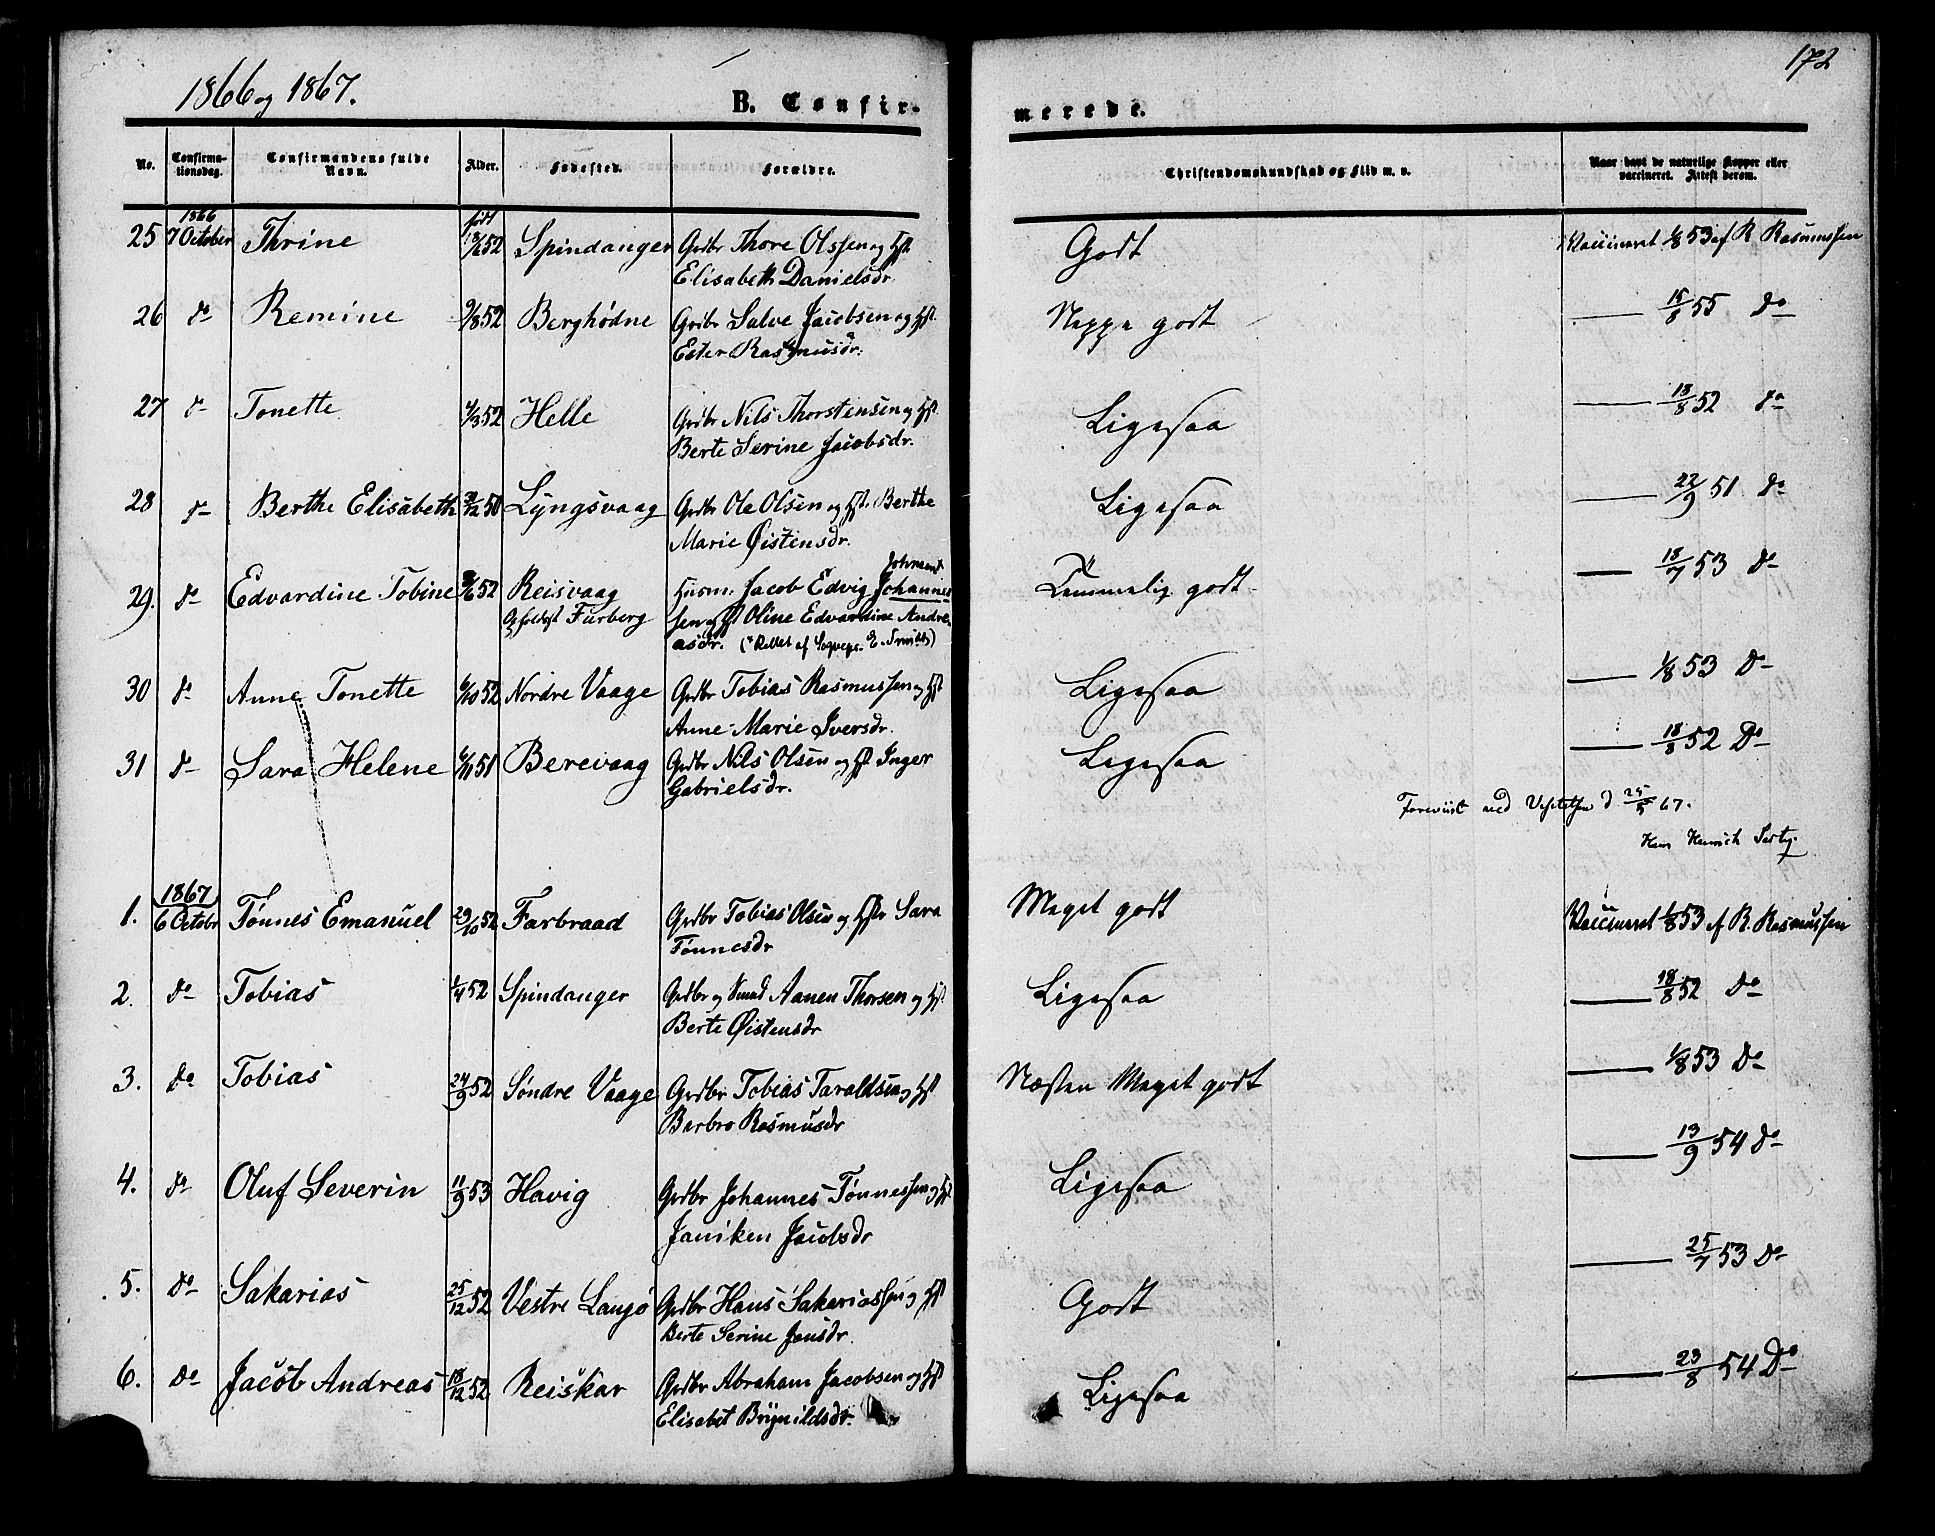 1866 og 1867.
B. Confir-
merede.
172
No.
Confirma-
tionsdag.
Confirmandens fulde
Navn.
Alder.
Fødested.
Forældre.
Christendomskundskab og Flid m. v.
Naar havt de naturlige Kopper eller
vaccineret. Attest derom.
25 1866 7 October Thrine født 52 Spindanger Grdbr Thore Olsen og Hst Godt Vaccineret 1/8 53 af R Rasmussen
Elisabeth Danielsdr
26 do Remine 9/8 52 Berghødne Grdbr Salve Jacobsen og Hst. Neppe godt 15/8 55 Do
Ester Rasmusdr.
27 do Tonette 4/3 52 Helle Grdbr Nils Thorstensen og Hst. Ligesaa 18/8 52 do
Berte Serine Jacobsdr.
28 do Berthe Elisabeth 50 Lyngsvaag Grdbr Ole Olsen og Hst. Berthe Ligesaa 22/9 51 Do
Marie Øistensdr.
29. do Edvardine Tobine 52 Reisvaag Husm. Jacob Edvig Johannes- Temmelig godt 18/7 53 Do
Furberg sen og Hst Oline Edvardine Andre-
asdr. (Rettet af Sogneps. E. Smith)
30 do Anne Tonette 6/10 52 Nordre Vaage Grdbr Tobias Rasmussen og Hst Ligesaa 1/8 53 Do
Anne Marie Iversdr.
31 do Sara Helene 6/11 51 Berevaag Grdbr Nils Olsen og Hst Inger Ligesaa 18/8 52 Do
Gabrielsdr.
Foreviist ved Visitatsen d 25/5 67.
1. 1867 6 Octobr Tønnes Emanuel 29/10 52 Farbraad Grdbr Tobias Olsen og Hstr Sara Meget godt Vaccineret 1/8 53 af R. Rasmussen
Tønnesdr
2. do Tobias 1/4 52 Spindanger Grdbr og Smed Aanen Thorsen og Hst Ligesaa 18/8 52 Do
Berte Øistensdr
3. do Tobias 24/9 52 Søndre Vaage Grdbr Tobias Taraldsen og Hst Næsten Meget godt 1/8 53 Do
Berbro Rasmusdr
4. do Oluf Severin 11/9 53 Havig Grdbr Johannes Tønnessen og Hst Ligesaa 13/9 54 Do
Janiken Jacobsdr
5. do Sakarias 25/12 52 Vestre Langø Grdbr Hans Sakariassen og Hst Godt 25/7 53 Do
Berte Serine Jensdr.
6. Do Jacob Andreas 18/12 52 Reiskar Grdbr Abraham Jacobsen og Hst Ligesaa 23/8 54 Do
Elisabet Brynildsdr.